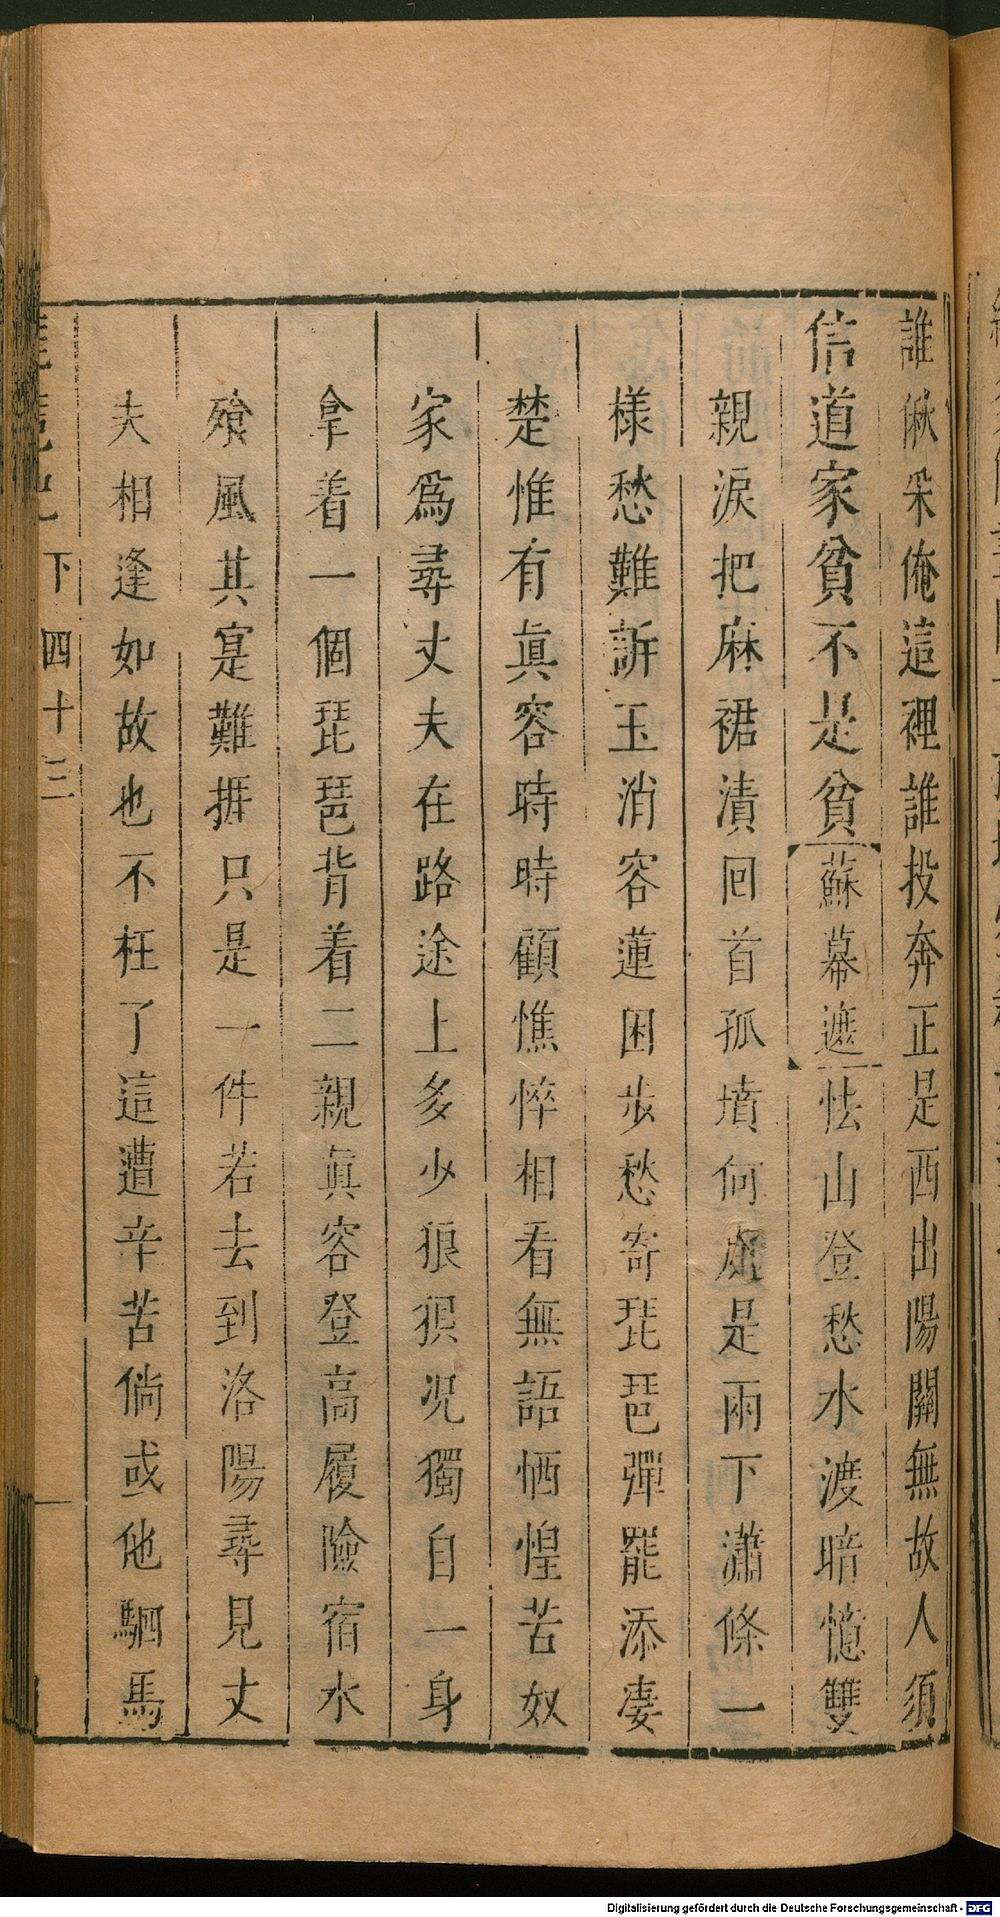 誰偢采俺這裡誰投奔正是西出陽關無故人須
信道家貧不是貧蘇幕遮怯山登愁水渡暗憶雙
親淚把麻裙漬回首孤墳何處是兩下瀟條一
樣愁難訴玉消容蓮困步愁寄琵琶彈罷添凄
楚惟有眞容時時顧憔悴相看無語恓惶苦奴
家爲尋丈夫在路途上多少狼狽况獨自一身
拿着一個琵琶背着二親眞容登高履險宿水
飡風其寔難捱只是一件若去到洛陽尋見丈
夫相逢如故也不枉了這遭辛苦倘或他駟馬
下 四十三
Digitalisierung gefördert durch die Deutsche Forschungsgemeinschaft - DFG